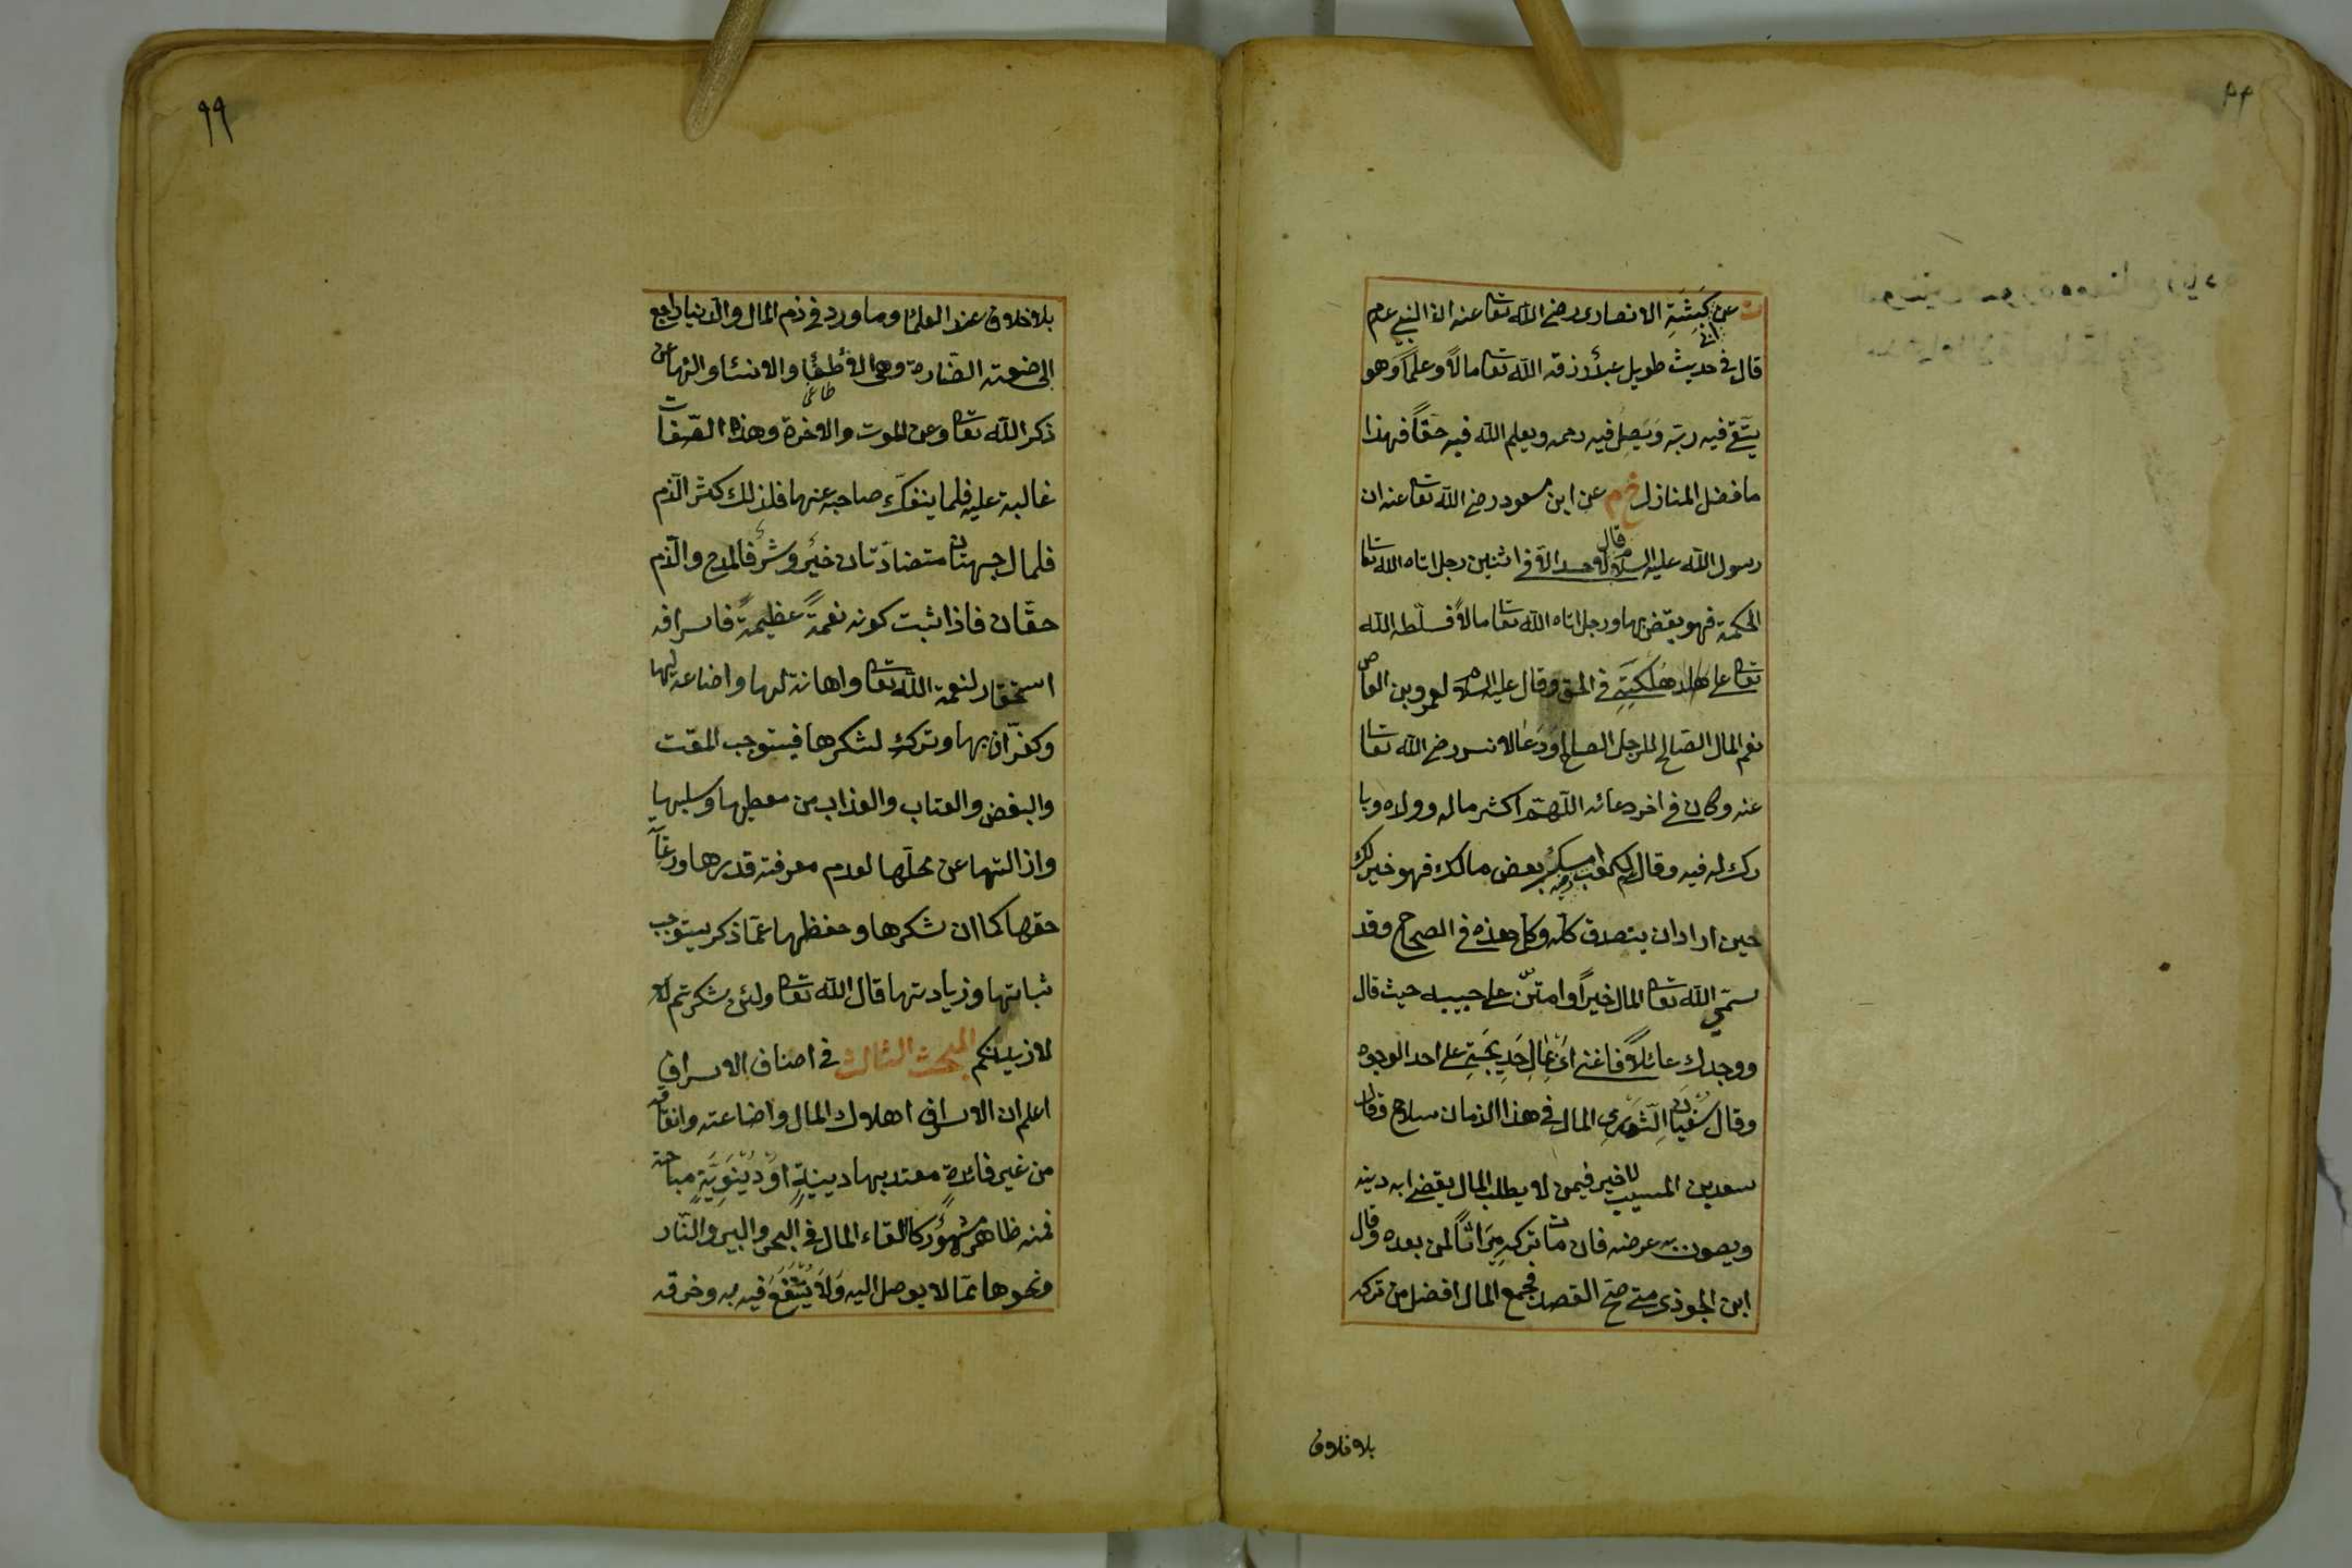 ت عن كبشة الانصارى رضي الله تعا عنه ان النبي عم
ابى
قال في حديث طويل عبدٌ رزقه الله تعا مالاً وعلماً وهو
يتّقي فيه ربّه ويَصِل فيه رحمه ويعلم الله فيه حقاً فهذا
ما فضل المنازل خ م عن ابن مسعود رضي الله تعا عنه ان
رسول الله عليه السلام قال لا حسد الا في اثنين رجل اتاه الله تعا
الحكمة فهو يقضي بها ورجل اتاه الله تعا مالاً فسلّطه الله
تعا على هلكته في الحق وقال عليه السلام لعمرو بن العاص
نعم المال الصّالح للرجل الصالح ودعا لانس رضي الله تعا
عنه وكان في اخر دعائه اللّهمّ اكثر ماله وولده وبا
رك له فيه وقال لكعب امسك بعض مالك فهو خير لك
حين اراد ان يتصدق كله وكل هذه في الصحاح وقد
سمّى الله تعا المال خيراً وامتنّ على حبيبه حيث قال
ووجدك عائلاً فاغنى اى بمال خديجة على احد الوجوه
وقال سفيان الثّورى المال في هذا الزمان سلاح وقال
سعد بن المسيب لا خير فيمن لا يطلب المال يقضي به دينه
ويصون به عرضه فان مات تركه ميراثاً لمن بعده وقال
ابن الجوذى متى صح القصد فجمع المال افضل من تركه
بلا خلاف
٩٩
بلا خلاف عند العلماء وما ورد في ذم المال والدنيا راجع
الى صفته الضّارة وهى الاطغا والانساء والالهاء عن
طاغى
ذكر الله تعا وعن الموت والاخرة وهذه الصّفات
غالبة عليه فلما ينفكّ صاحبه عنها فلذلك كثر الذم
فلمال جهتان متضادّتان خيرٌ وشرٌ فالمدح والذّم
حقّان فاذا ثبت كونه نعمةً عظيمةً فاسرافه
استحقار لنعمة الله تعا واهانة لها واضاعة لها
وكفران بها وترك لشكرها فيستوجب المقت
والبغض والعتاب والعذاب من معطيها وسلبها
وازالتها عن محلّها لعدم معرفته قدرها ورعاية
حقها كما ان شكرها وحفظها عمّا ذكر يستوجب
ثباتها وزيادتها قال الله تعا ولئن شكرتم لا
لازيدنكم المبحث الثالث في اصناف الاسراف
اعلم ان الاسراف اهلاك المال واضاعته وانفاقه
من غير فائدةٍ معتد بها دينيةٍ اودنيويّةٍ مباحة
فمنه ظاهر مشهورٌ كالقاء المال في البحر والبير والنّار
ونحوها ممّا لا يوصل اليه ولا ينتفع فيه به وخرقه